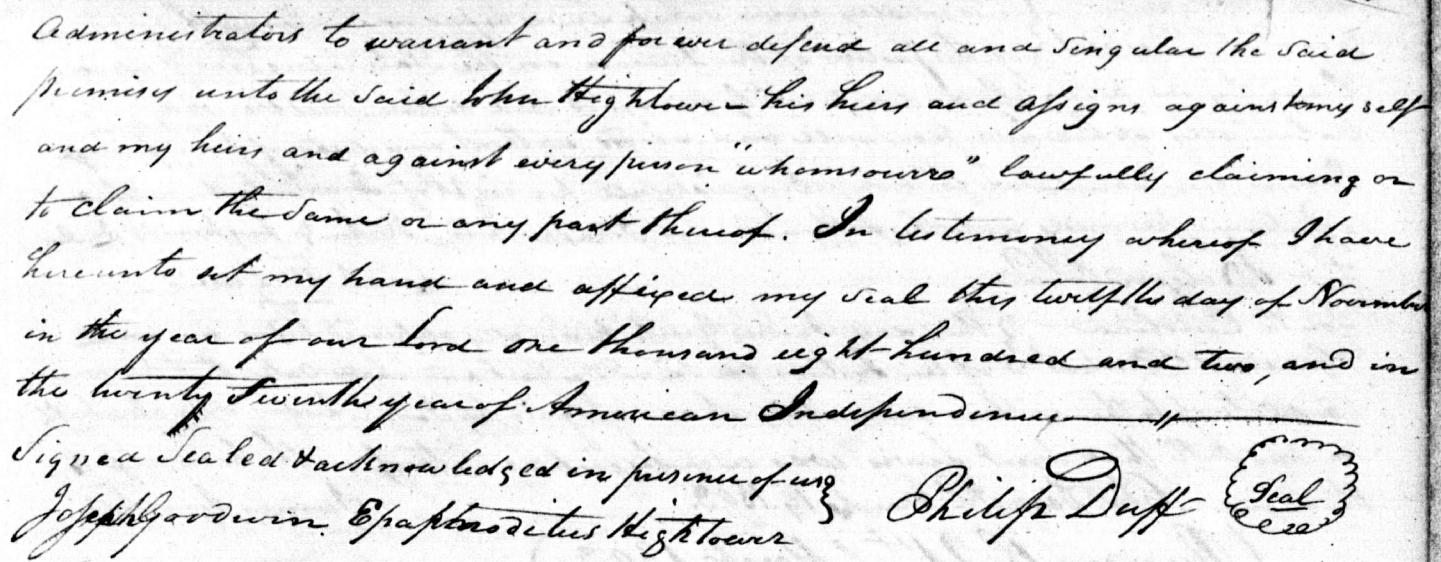 Administrators to warrant and forever defend all and singular the said
premises unto the said John Hightower his heirs and assigns against my self
and my heirs and against every person "whomsoever" lawfully claiming or
to claim the same or any part thereof. In testimoney whereof I have
hereunto set my hand and affixed my seal this twelfth day of November
in the year of our Lord one thousand eight hundred and two, and in
the twenty seventh year of American Independence
Signed Sealed & acknowledged in presence of us }
Joseph Goodwin. Epaphroditus Hightower
Philip Duff
Seal